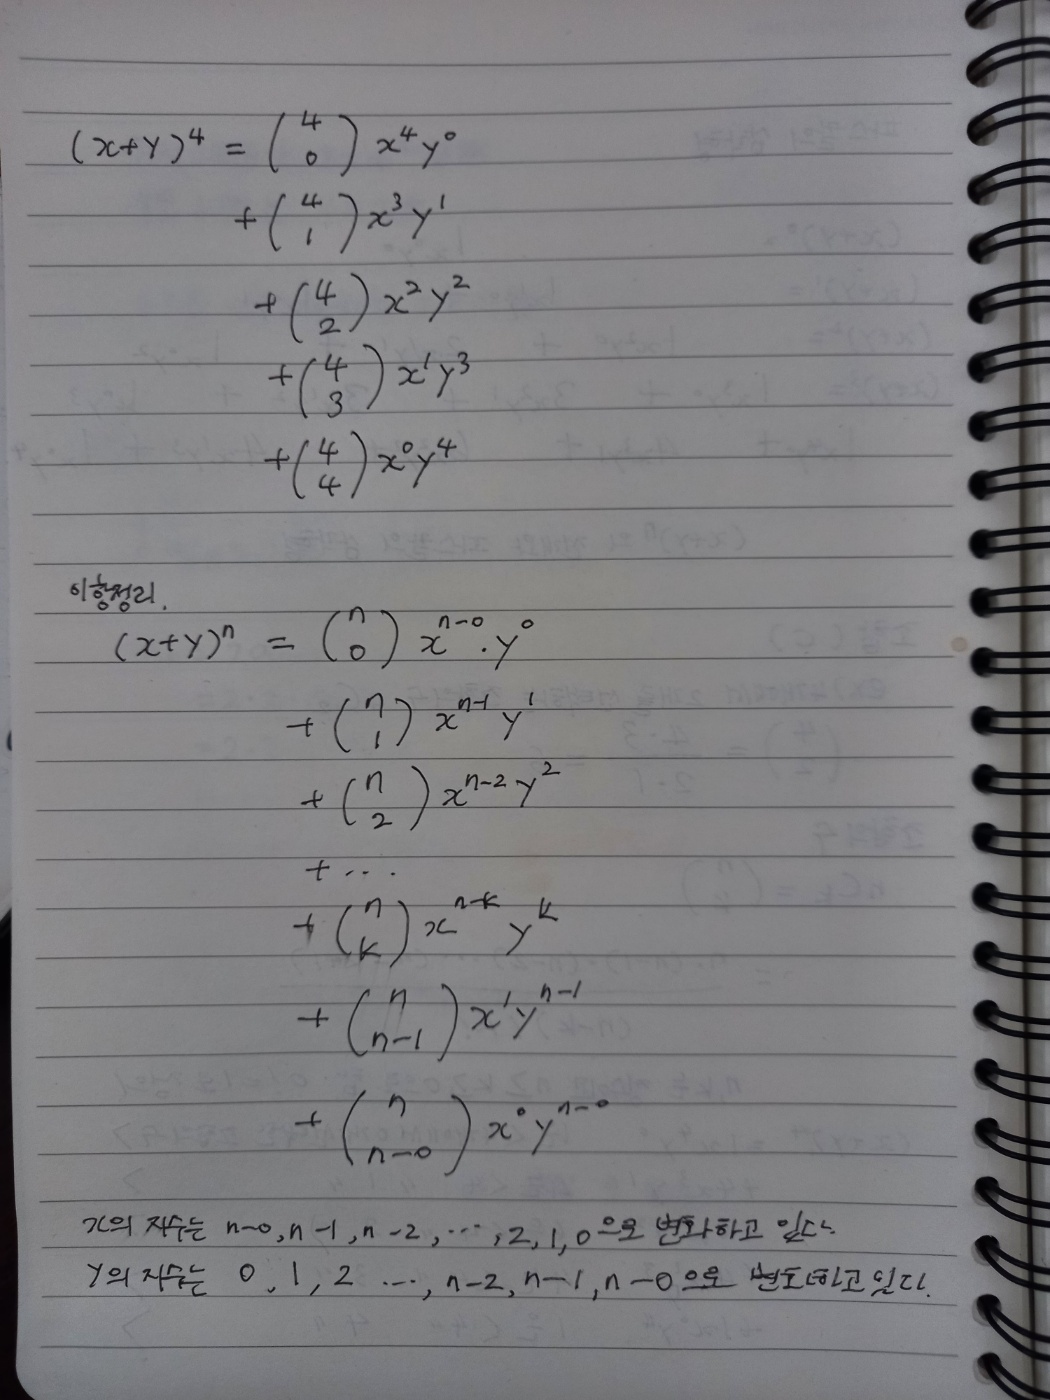 (x+y)⁴ = (4 0) x⁴y⁰
+(4 1)x³y¹
+(4 2)x²y²
+(4 3)x¹y³
+(4 4)x⁰y⁴
이항정리.
(x+y)ⁿ = (n 0) xⁿ⁻⁰·y⁰
+(n 1)xⁿ⁻¹y¹
+(n 2)xⁿ⁻²y²
+...
+(n k)xⁿ⁻ᵏyᵏ
+(n n-1)x¹yⁿ⁻¹
+(n n-0)x⁰yⁿ⁻⁰
x의 지수는 n-0, n-1, n-2, ..., 2, 1, 0으로 변화하고 있다.
y의 지수는 0, 1, 2 ..., n-2, n-1, n-0으로 하고 있다.